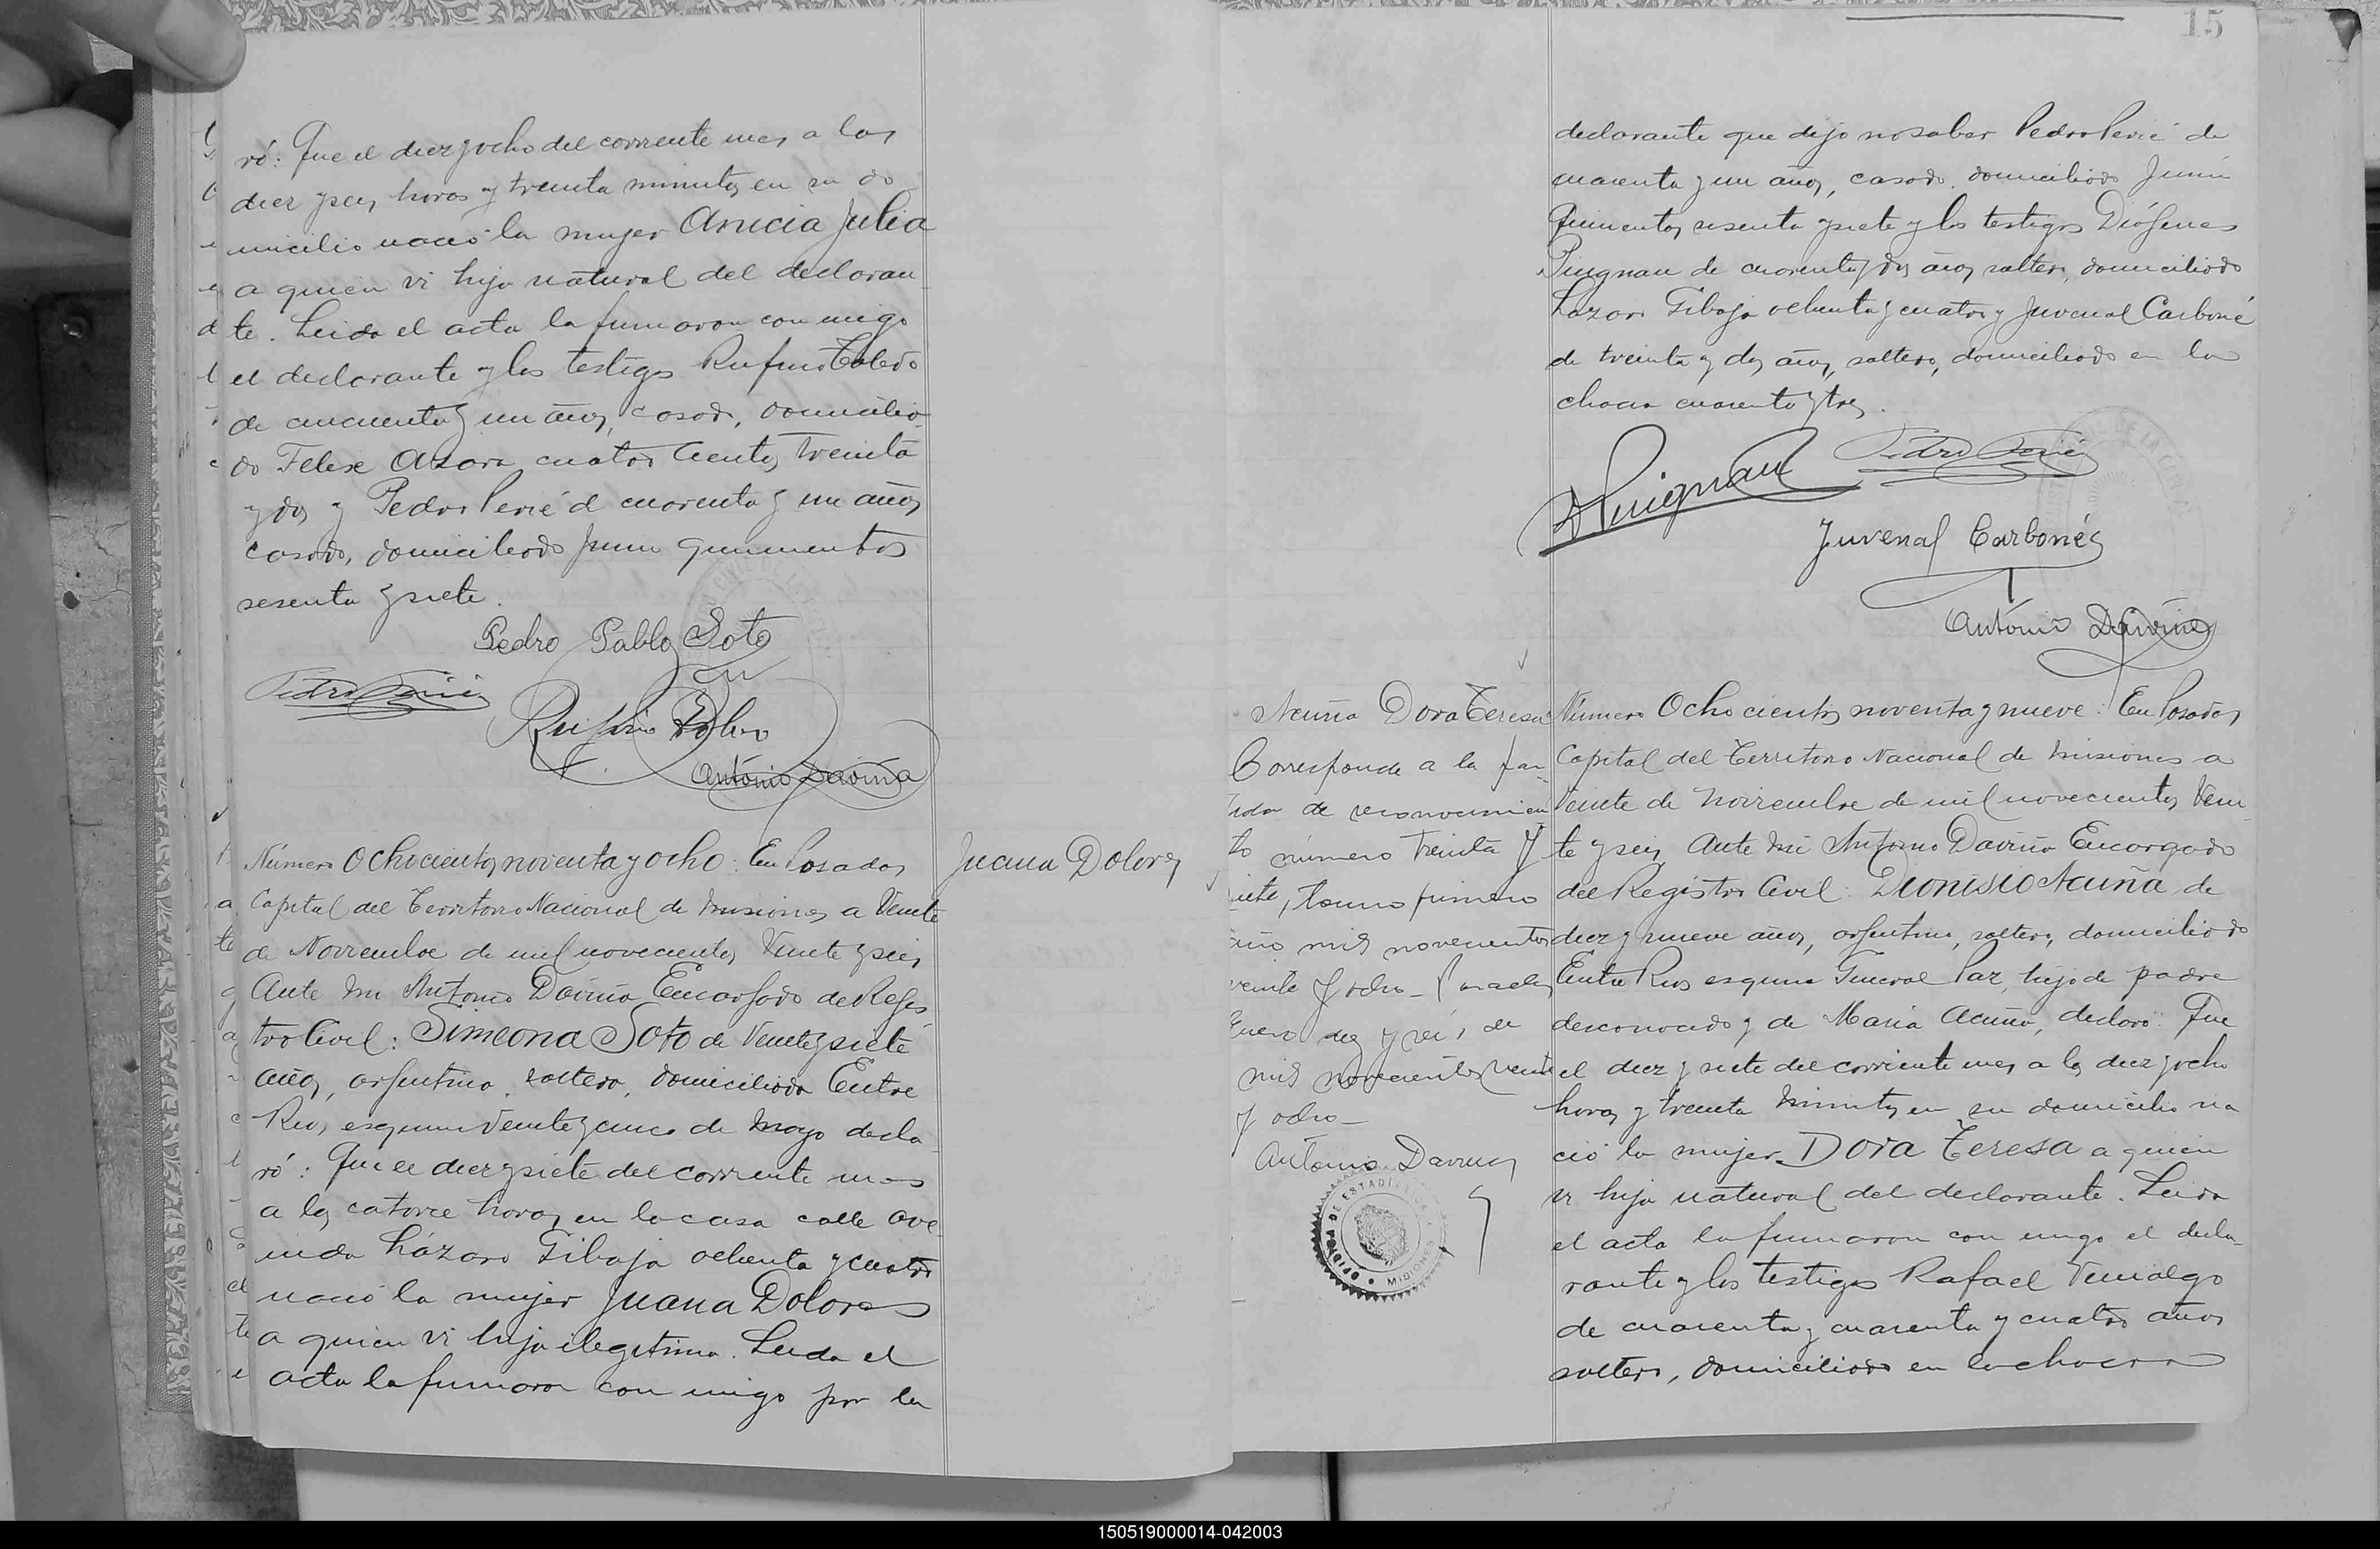 ró: Que el diez y ocho del corriente mes a las
diez y seis horas y treinta minutos en su do
micilio nació la mujer Anicia Julia
a quien vi hija natural del declaran
te. Leida el acta la firmaron con migo
el declarante y los testigos Rufino Toledo
de cincuenta y un años, casado, domicilia
do Felix Azara cuatro cientos treinta
y dos y Pedro Perié d cuarenta y un años
casado, domiciliado Junin quinientos
sesenta y siete.
Pedro Pablo Soto
Pedro Perié
Rufino Toledo
Antonio Daviña
Número Ochocientos noventa y ocho: En Posadas
Juana Dolores
Capital del Territorio Nacional de Misiones a Veinte
de Noviembre de mil novecientos Veinte y seis
Ante mi Antonio Daviña Encargado de Regis
tro Civil: Simeona Soto de Veinte y siete
años, argentina, soltera, domiciliada Entre
Rios esquina Veinte y cinco de Mayo decla
ró: Que el diez y siete del corriente mes
a las catorce horas en la casa calle ave
nida Lázaro Gibaja ochenta y cuatro
nació la mujer Juana Dolores
a quien vi hija ilegitima. Leida el
acta la firmaron con migo por la
15
declarante que dijo no saber Pedro Perié de
cuarenta y un años, casado, domiciliado Junin
Quinientos sesenta y siete y los testigos Diógenes
Puignau de cuarenta y dos años soltero, domiciliado
Lázaro Gibaja ochenta y cuatro y Juvenal Carboné
de treinta y dos años, soltero, domiciliado en la
chacra cuarenta y tres.
Pedro Perié
D Puignau
Juvenal Carbonés
Antonio Daviña
Acuña Dora Teresa
Corresponde a la par
tida de reconocimien
to número treinta y
siete, tomo primero
año mil novecientos
veinte y ocho - Posadas
Enero diez y seis de
mil novecientos veinte
y ocho -
Antonio Daviña
DE ESTADISTICA
MISIONES
Número Ochocientos noventa y nueve: En Posadas
Capital del Territorio Nacional de Misiones a
Veinte de Noviembre de mil novecientos Vein
te y seis Ante mi Antonio Daviña Encargado
del Registro Civil: Dionisio Acuña de
diez y nueve años, argentino, soltero, domiciliado
Entre Rios esquina General Paz, hijo de padre
desconocido y de Maria Acuña, declaró: Que
el diez y siete del corriente mes a las diez y ocho
horas y treinta minutos en su domicilio na
ció la mujer Dora Teresa a quien
vi hija natural del declarante. Leida
el acta la firmaron con migo el decla-
rante y los testigos Rafael Venialgo
de cuarenta y cuarenta y cuatro años
soltero, domiciliado en la chacra
150519000014-042003